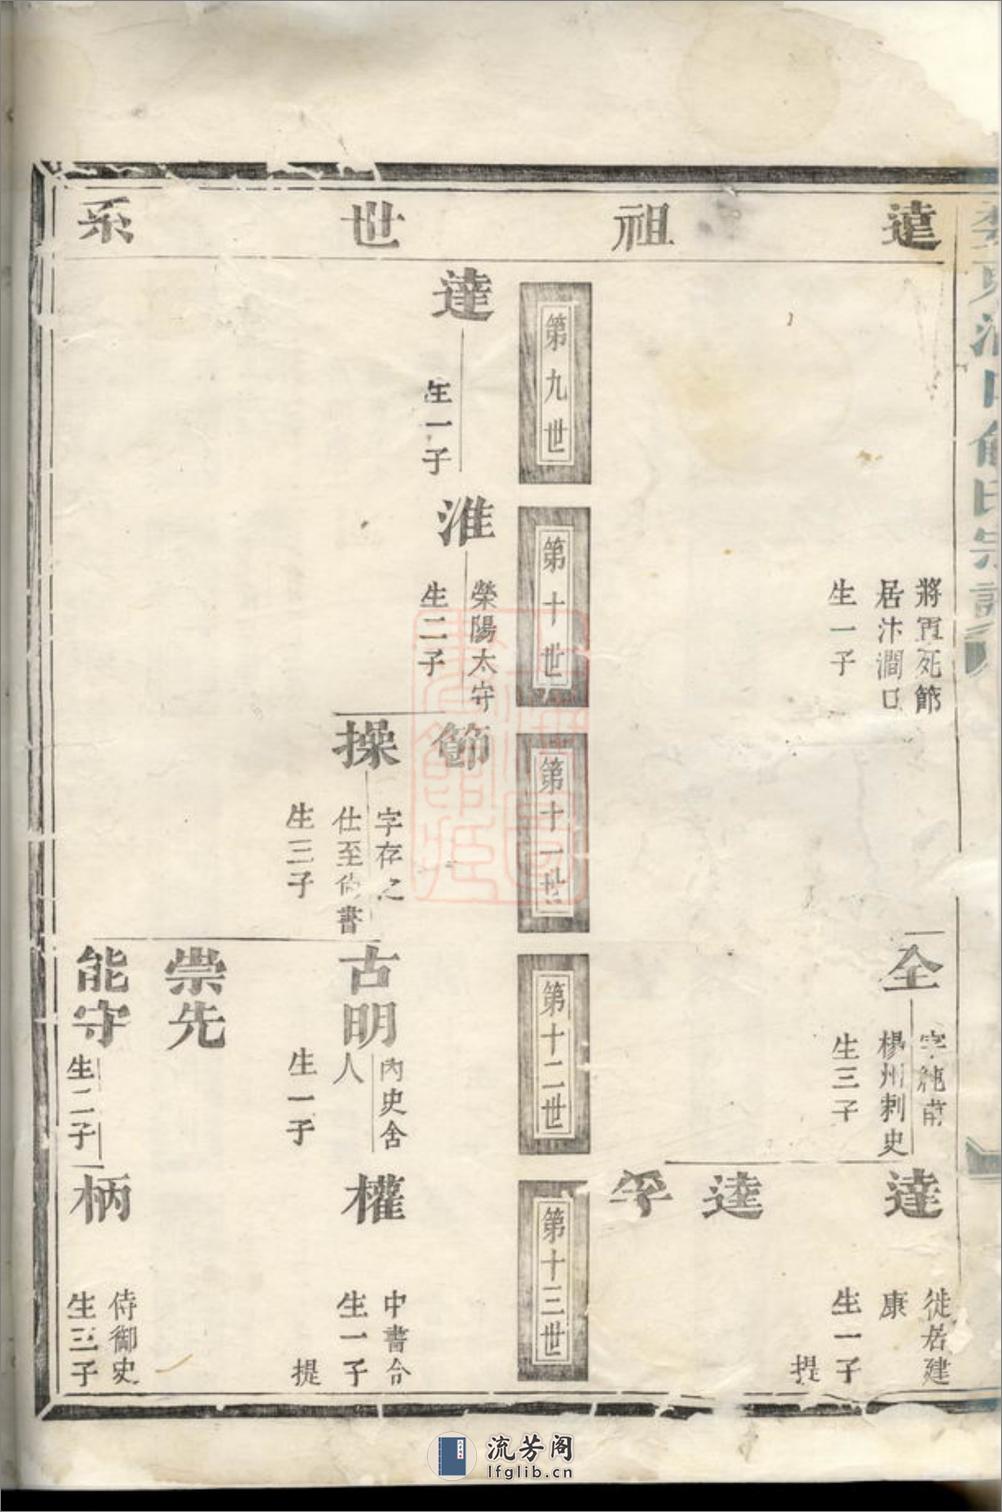 遠祖世系
將軍死節
居汴澗口
生一子
全
揚州刺史
生三子
達
徙居建
康
生一子
提
逵
平
第九世
第十世
第十一世
第十二世
第十三世
達
生一子
淮
榮陽太守
生二子
節
操
字存之
仕至尚書
生三子
古明
內史舍
人
生一子
崇先
能守
生二子
權
中書令
生一子
提
柄
侍御史
生三子
流芳阁
lfglib.cn